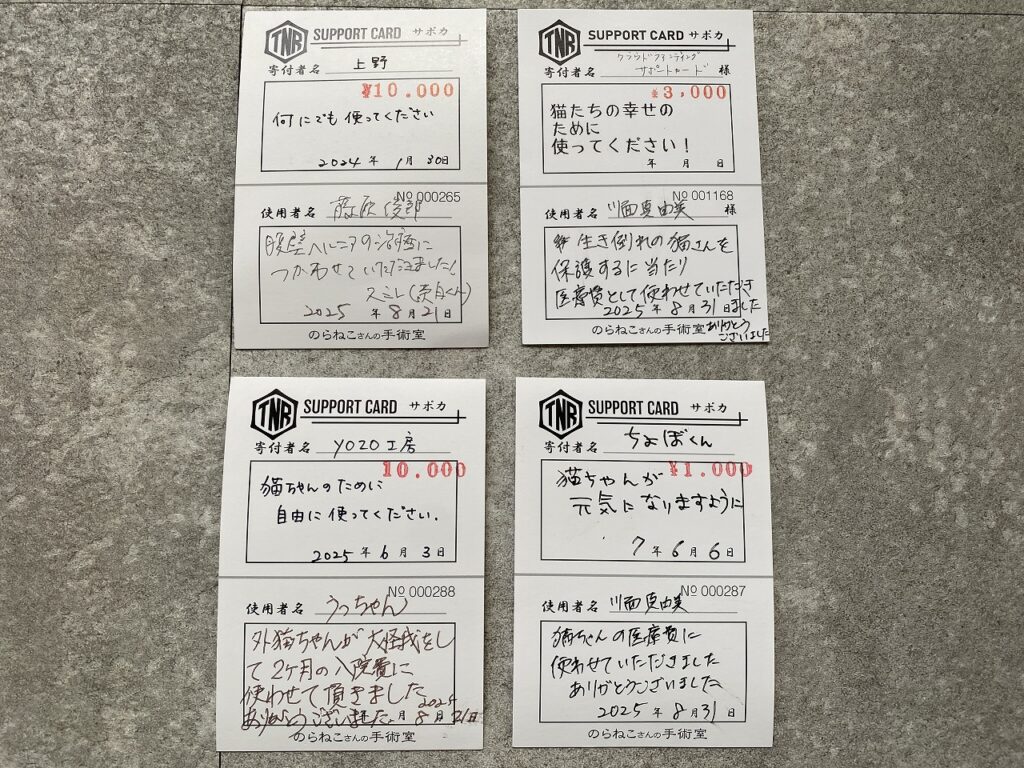 TNR SUPPORT CARD サポカ
寄付者名 上野
¥10.000
何にでも使ってください
2024年 1月 30日
No 000265
使用者名 藤原俊郎
腹壁ヘルニアの治療に
つかわせていただきました!
スミレ(
2025 年 8月 21日
のらねこさんの手術室
TNR SUPPORT CARD サポカ
クラウドファンディング
寄付者名 サポートカード 様
¥3,000
猫たちの幸せの
ために
使ってください!
年 月 日
No 001168
使用者名 川面真由美 様
生き倒れの猫さんを
保護するに当たり
医療費として使わせていただき
2025年 8月 31日ました
ありがとう
ございました
のらねこさんの手術室
TNR SUPPORT CARD サポカ
寄付者名 YOZO工房
10.000
猫ちゃんのために
自由に使ってください.
2025 年 6月 3日
No 000288
使用者名 うっちゃん
外猫ちゃんが大怪我をし
て2ヶ月の入院費に
使わせて頂きました
ありがとうございました 月 8月 21日
のらねこさんの手術室
TNR SUPPORT CARD サポカ
寄付者名 ちょぼくん
¥1.000
猫ちゃんが
元気になりますように
7年 6月 6日
No 000287
使用者名 川面真由美
猫ちゃんの医療費に
使わせていただきました
ありがとうございました
2025年 8月 31日
のらねこさんの手術室